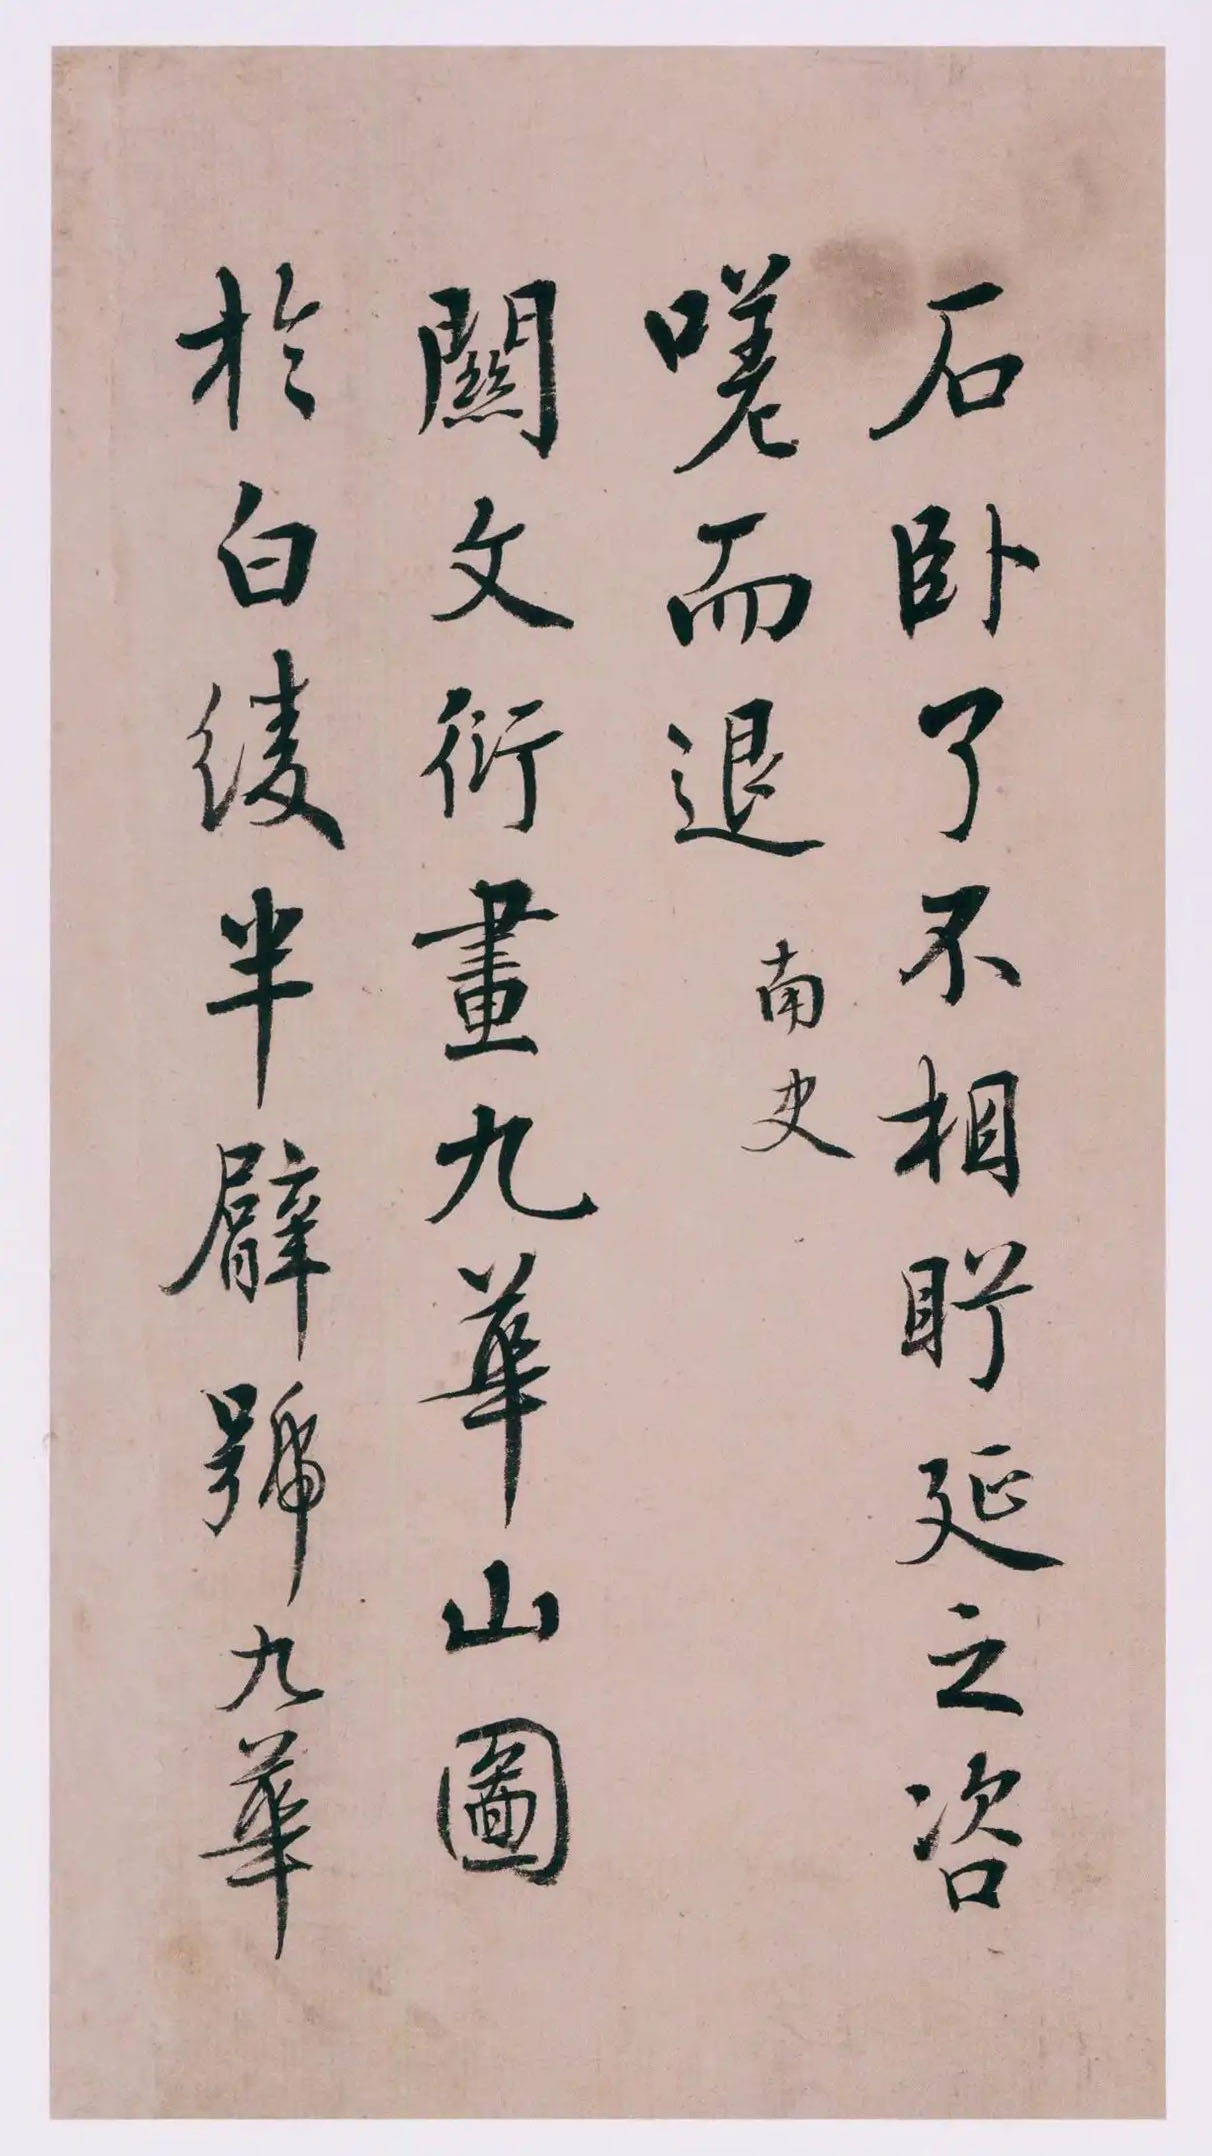 石卧了不相盯延之咨
嗟而退 南史
關文衍畫九華山圖
於白綾半臂號九華